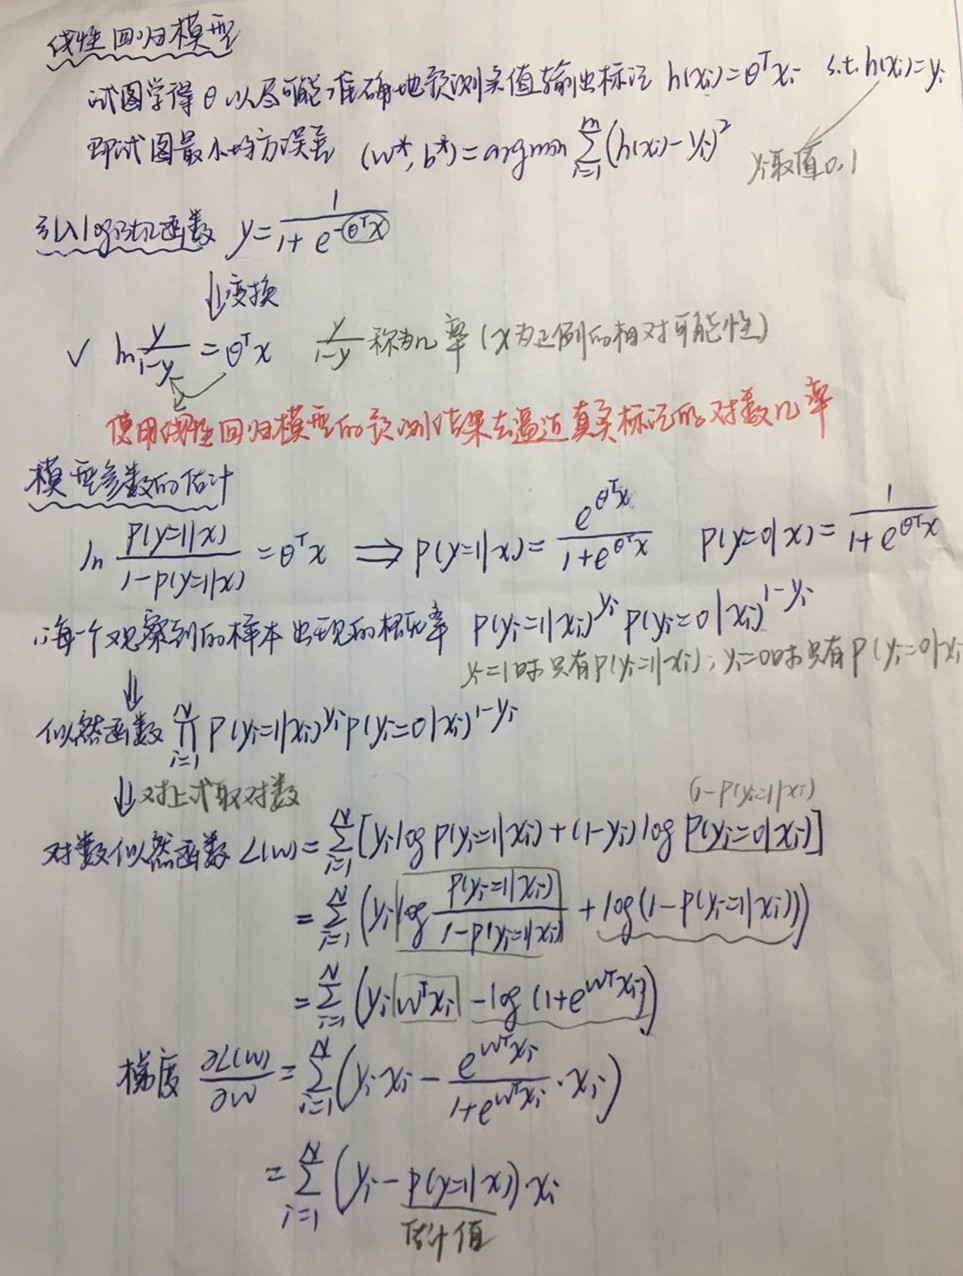 线性回归模型
试图学得θ以尽可能准确地预测实值输出标记 h(xᵢ)=θᵀxᵢ s.t. h(xᵢ)=yᵢ
即试图最小均方误差 (w*, b*)=argmin ∑ᵢ₌₁ᵐ(h(xᵢ)-yᵢ)²
yᵢ取值0,1
引入logistic函数 y=1/(1+e^(-θᵀx))
↓变换
✓ ln y/(1-y) = θᵀx y/(1-y) 称为几率 (x为正例的相对可能性)
使用线性回归模型的预测结果去逼近真实标记的对数几率
模型参数的估计
ln P(y=1|x)/(1-P(y=1|x)) = θᵀx ⟹ P(y=1|x)= e^(θᵀx)/(1+e^(θᵀx)) P(y=0|x)= 1/(1+e^(θᵀx))
每一个观察到的样本出现的概率 P(yᵢ=1|xᵢ)^(yᵢ) P(yᵢ=0|xᵢ)^(1-yᵢ)
yᵢ=1时只有P(yᵢ=1|xᵢ); yᵢ=0时只有P(yᵢ=0|xᵢ
↓
似然函数 ∏ᵢ₌₁ᴺ P(yᵢ=1|xᵢ)^(yᵢ) P(yᵢ=0|xᵢ)^(1-yᵢ)
↓对上式取对数
1-P(yᵢ=1|xᵢ)
对数似然函数 L(w)= ∑ᵢ₌₁ᴺ[yᵢ log P(yᵢ=1|xᵢ)+(1-yᵢ) log P(yᵢ=0|xᵢ)]
= ∑ᵢ₌₁ᴺ (yᵢ log P(yᵢ=1|xᵢ)/(1-P(yᵢ=1|xᵢ)) + log(1-P(yᵢ=1|xᵢ)))
= ∑ᵢ₌₁ᴺ (yᵢ wᵀxᵢ - log(1+e^(wᵀxᵢ)))
梯度 ∂L(w)/∂w = ∑ᵢ₌₁ᴺ (yᵢ·xᵢ - e^(wᵀxᵢ)/(1+e^(wᵀxᵢ))·xᵢ)
= ∑ᵢ₌₁ᴺ (yᵢ - P(y=1|xᵢ)) xᵢ
估计值